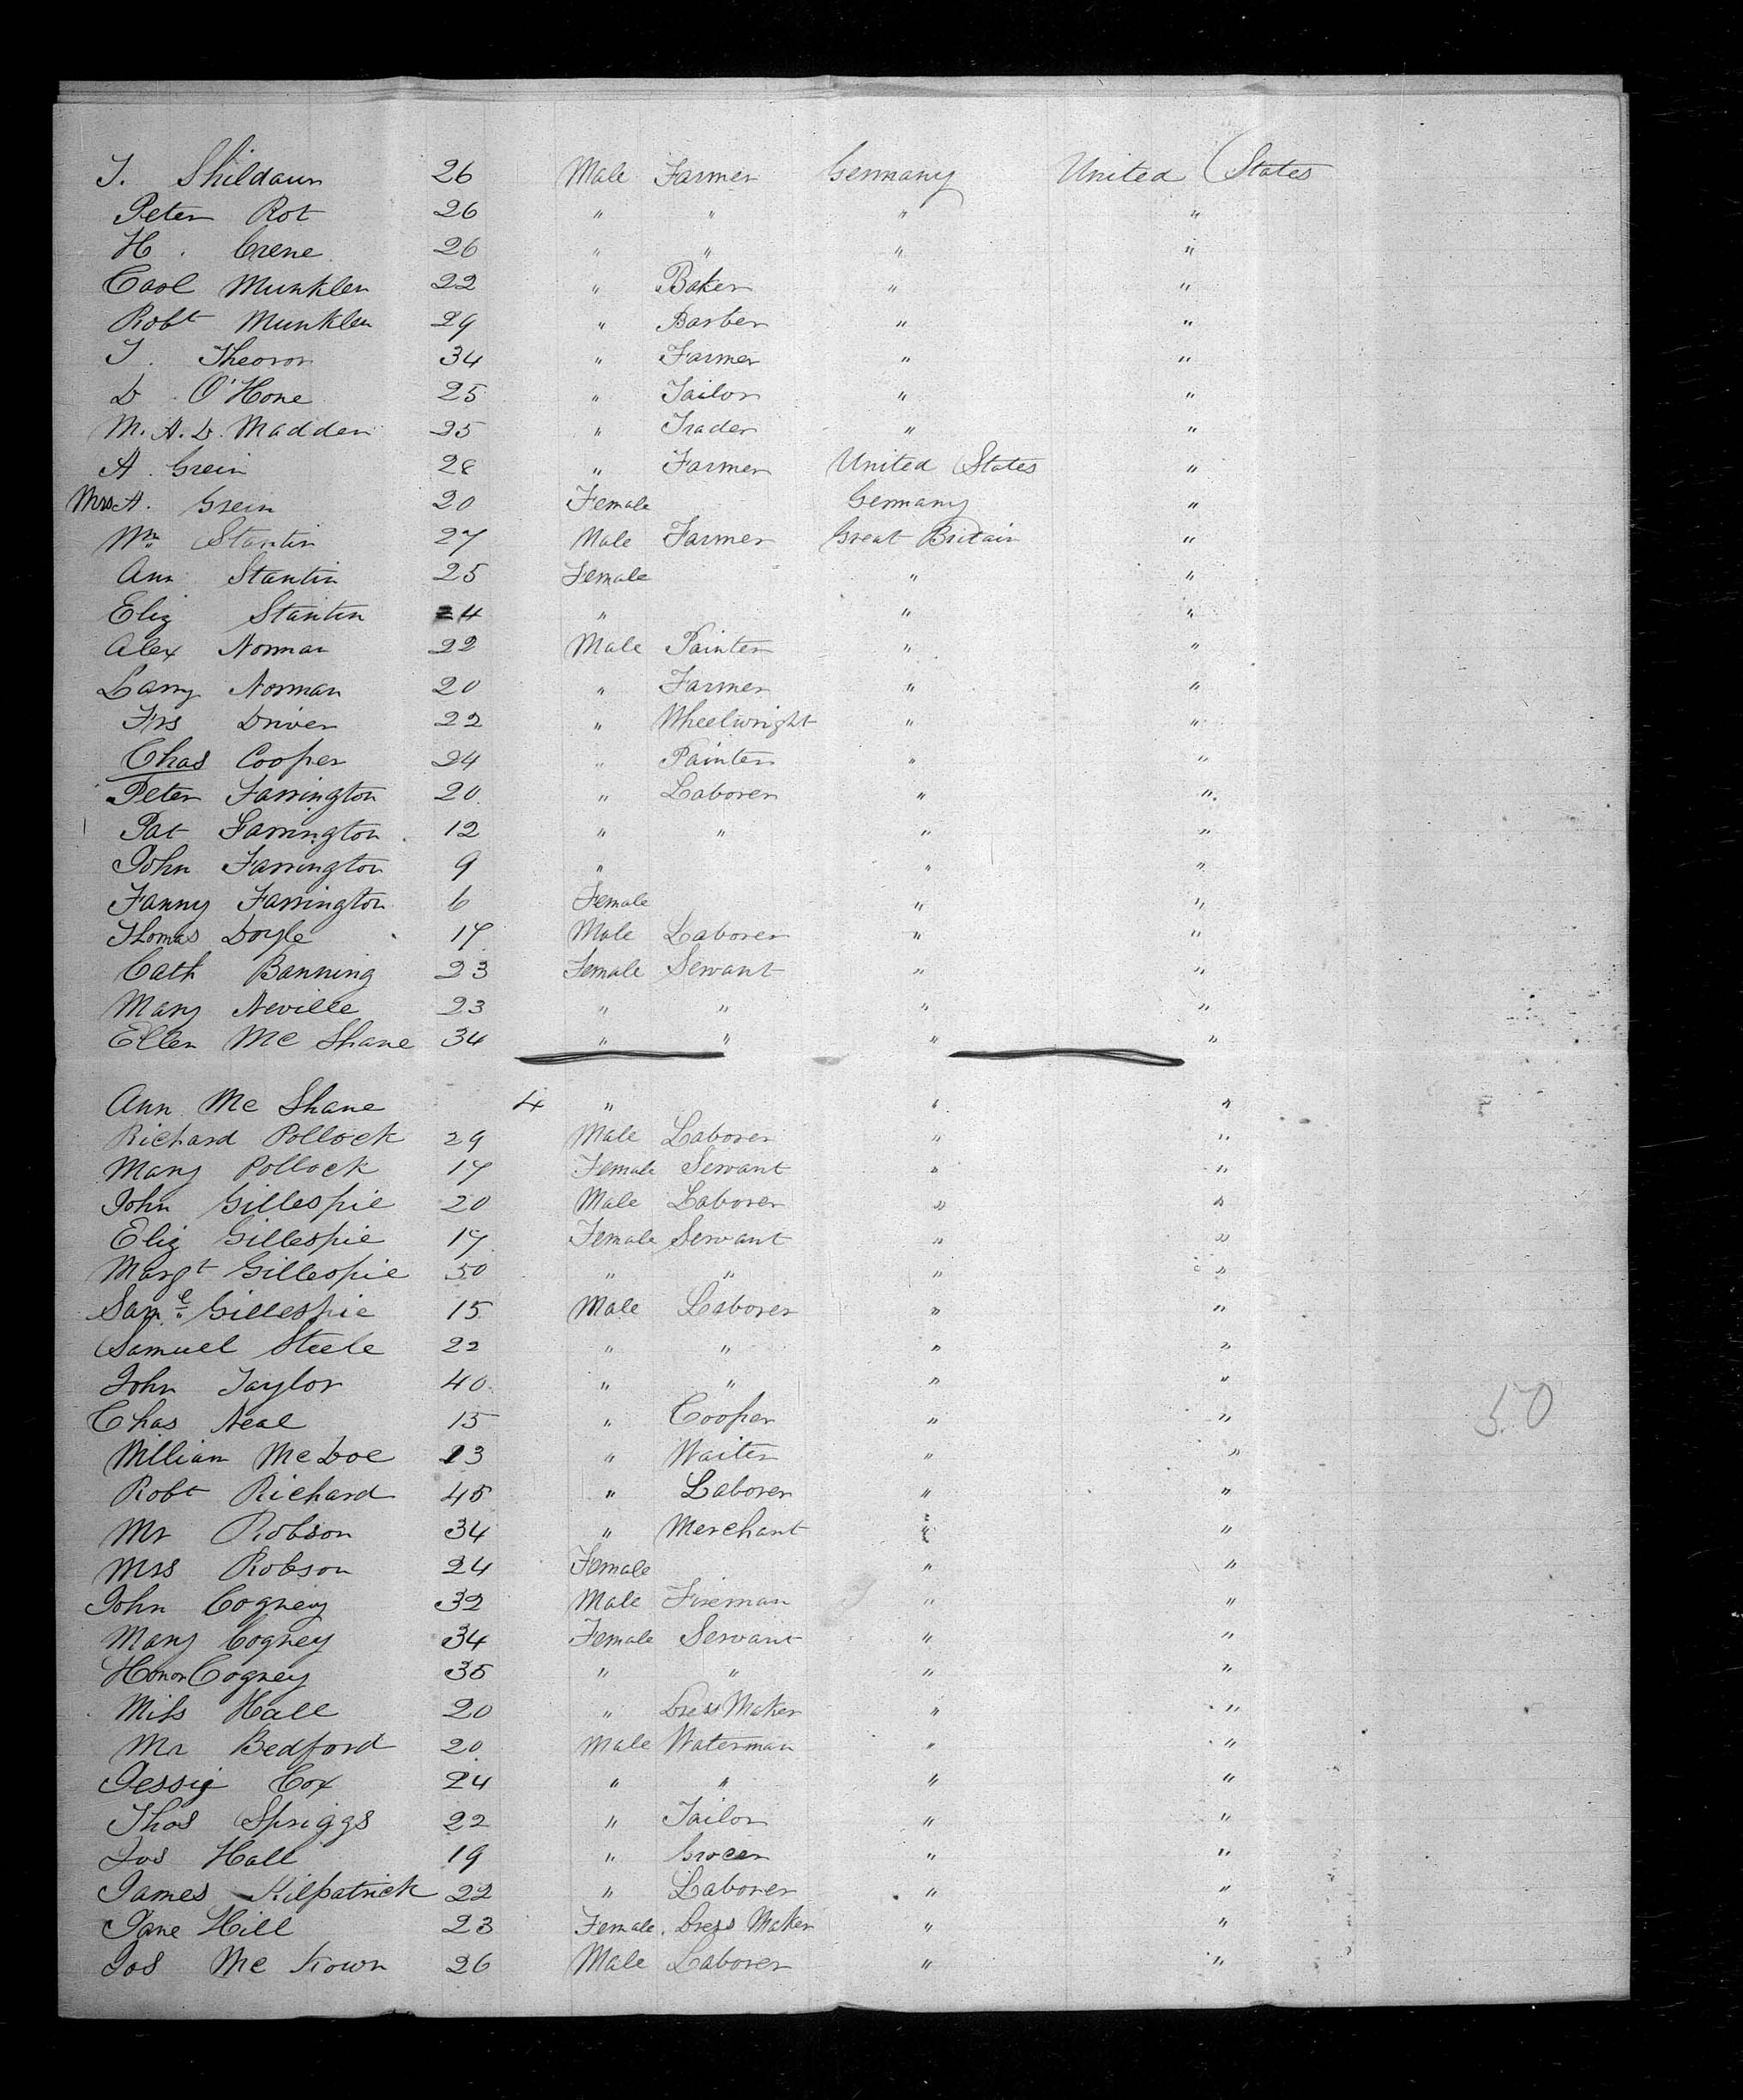 J. Shildaun 26 Male Farmer Germany United States
Peter Rot 26 " " " "
H. Crene 26 " " " "
Carl Munkler 22 " Baker " "
Robt Munkler 29 " Barber " "
J. Theoror 34 " Farmer " "
D. O'Hone 25 " Tailor " "
M. A. D. Madden 25 " Trader " "
A. Grein 28 " Farmer United States "
Mrs A. Grein 20 Female Germany "
Wm Stantin 27 Male Farmer Great Britain "
Ann Stantin 25 Female " "
Eliz Stantin 4 " " "
Alex Norman 22 Male Painter " "
Larry Norman 20 " Farmer " "
Frs Driver 22 " Wheelwright " "
Chas Cooper 24 " Painter " "
Peter Farrington 20 " Laborer " "
Pat Farrington 12 " " " "
John Farrington 9 " " "
Fanny Farrington 6 Female " "
Thomas Doyle 17 Male Laborer " "
Cath Banning 23 Female Servant " "
Mary Neville 23 " " " "
Ellen Mc Shane 34 " " " "
Ann Mc Shane 4 " " "
Richard Pollock 29 Male Laborer " "
Mary Pollock 17 Female Servant " "
John Gillespie 20 Male Laborer " "
Eliz Gillespie 17 Female Servant " "
Margt Gillespie 50 " " " "
Saml Gillespie 15 Male Laborer " "
Samuel Steele 22 " " " "
John Taylor 40 " " " "
Chas Neal 15 " Cooper " "
William Mc Doe 23 " Waiter " "
Robt Richard 45 " Laborer " "
Mr Robson 34 " Merchant " "
Mrs Robson 24 Female " "
John Cogney 32 Male Fireman " "
Mary Cogney 34 Female Servant " "
Honor Cogney 35 " " " "
Miss Hall 20 " Dress Maker " "
Mr Bedford 20 Male Waterman " "
Jessie Cox 24 " " " "
Thos Spriggs 22 " Tailor " "
Jos Hall 19 " Grocer " "
James Kilpatrick 22 " Laborer " "
Jane Hill 23 Female Dress Maker " "
Jos Mc Kown 26 Male Laborer " "
50